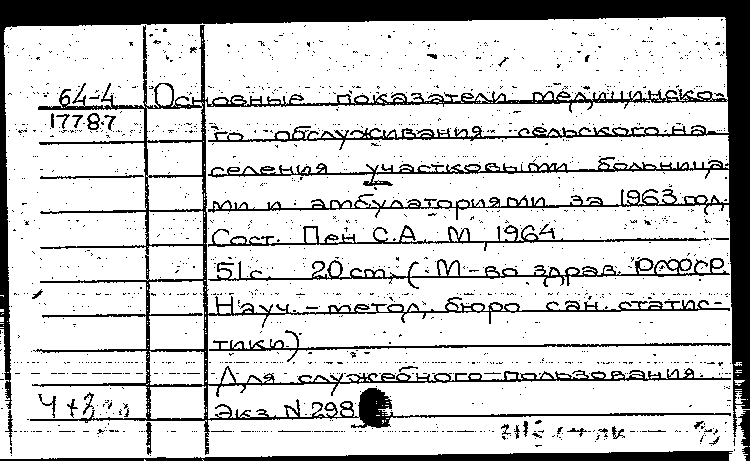 64-4 Основные показатели медицинско-
17787 го обслуживания сельского на-
селения участковыми больница-
ми и амбулаториями за 1963 год.
Сост. Пен С.А. М., 1964.
51с. 20 cm. (М-во здрав. РСФСР.
Науч.-метод. бюро сан. статис-
тики)
Для служебного пользования.
Экз. N 298